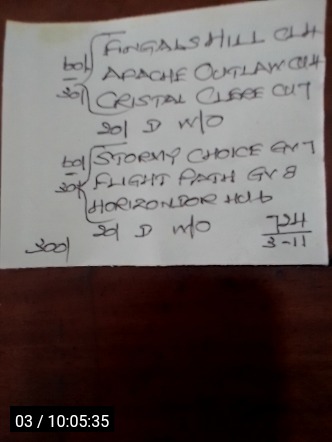 FINGALS HILL CL4
60/ APACHE OUTLAW CL4
30/ CRISTAL CLERE CL7
20/ D W/O
60/ STORMY CHOICE GV7
30/ FLIGHT PATH GV8
HORIZONDOR HU6
20/ D W/O
300/
724
3-11
03 / 10:05:35